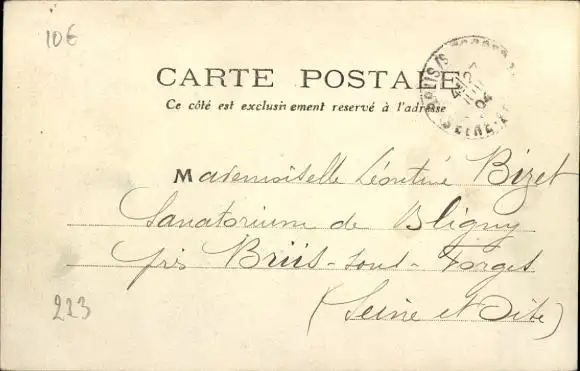 10€
CARTE POSTALE
Ce côté est exclusivement reservé à l'adresse
Mademoiselle Léontine Bizet
Sanatorium de Bligny
près Briis-sous-Forges
(Seine et Oise)
223